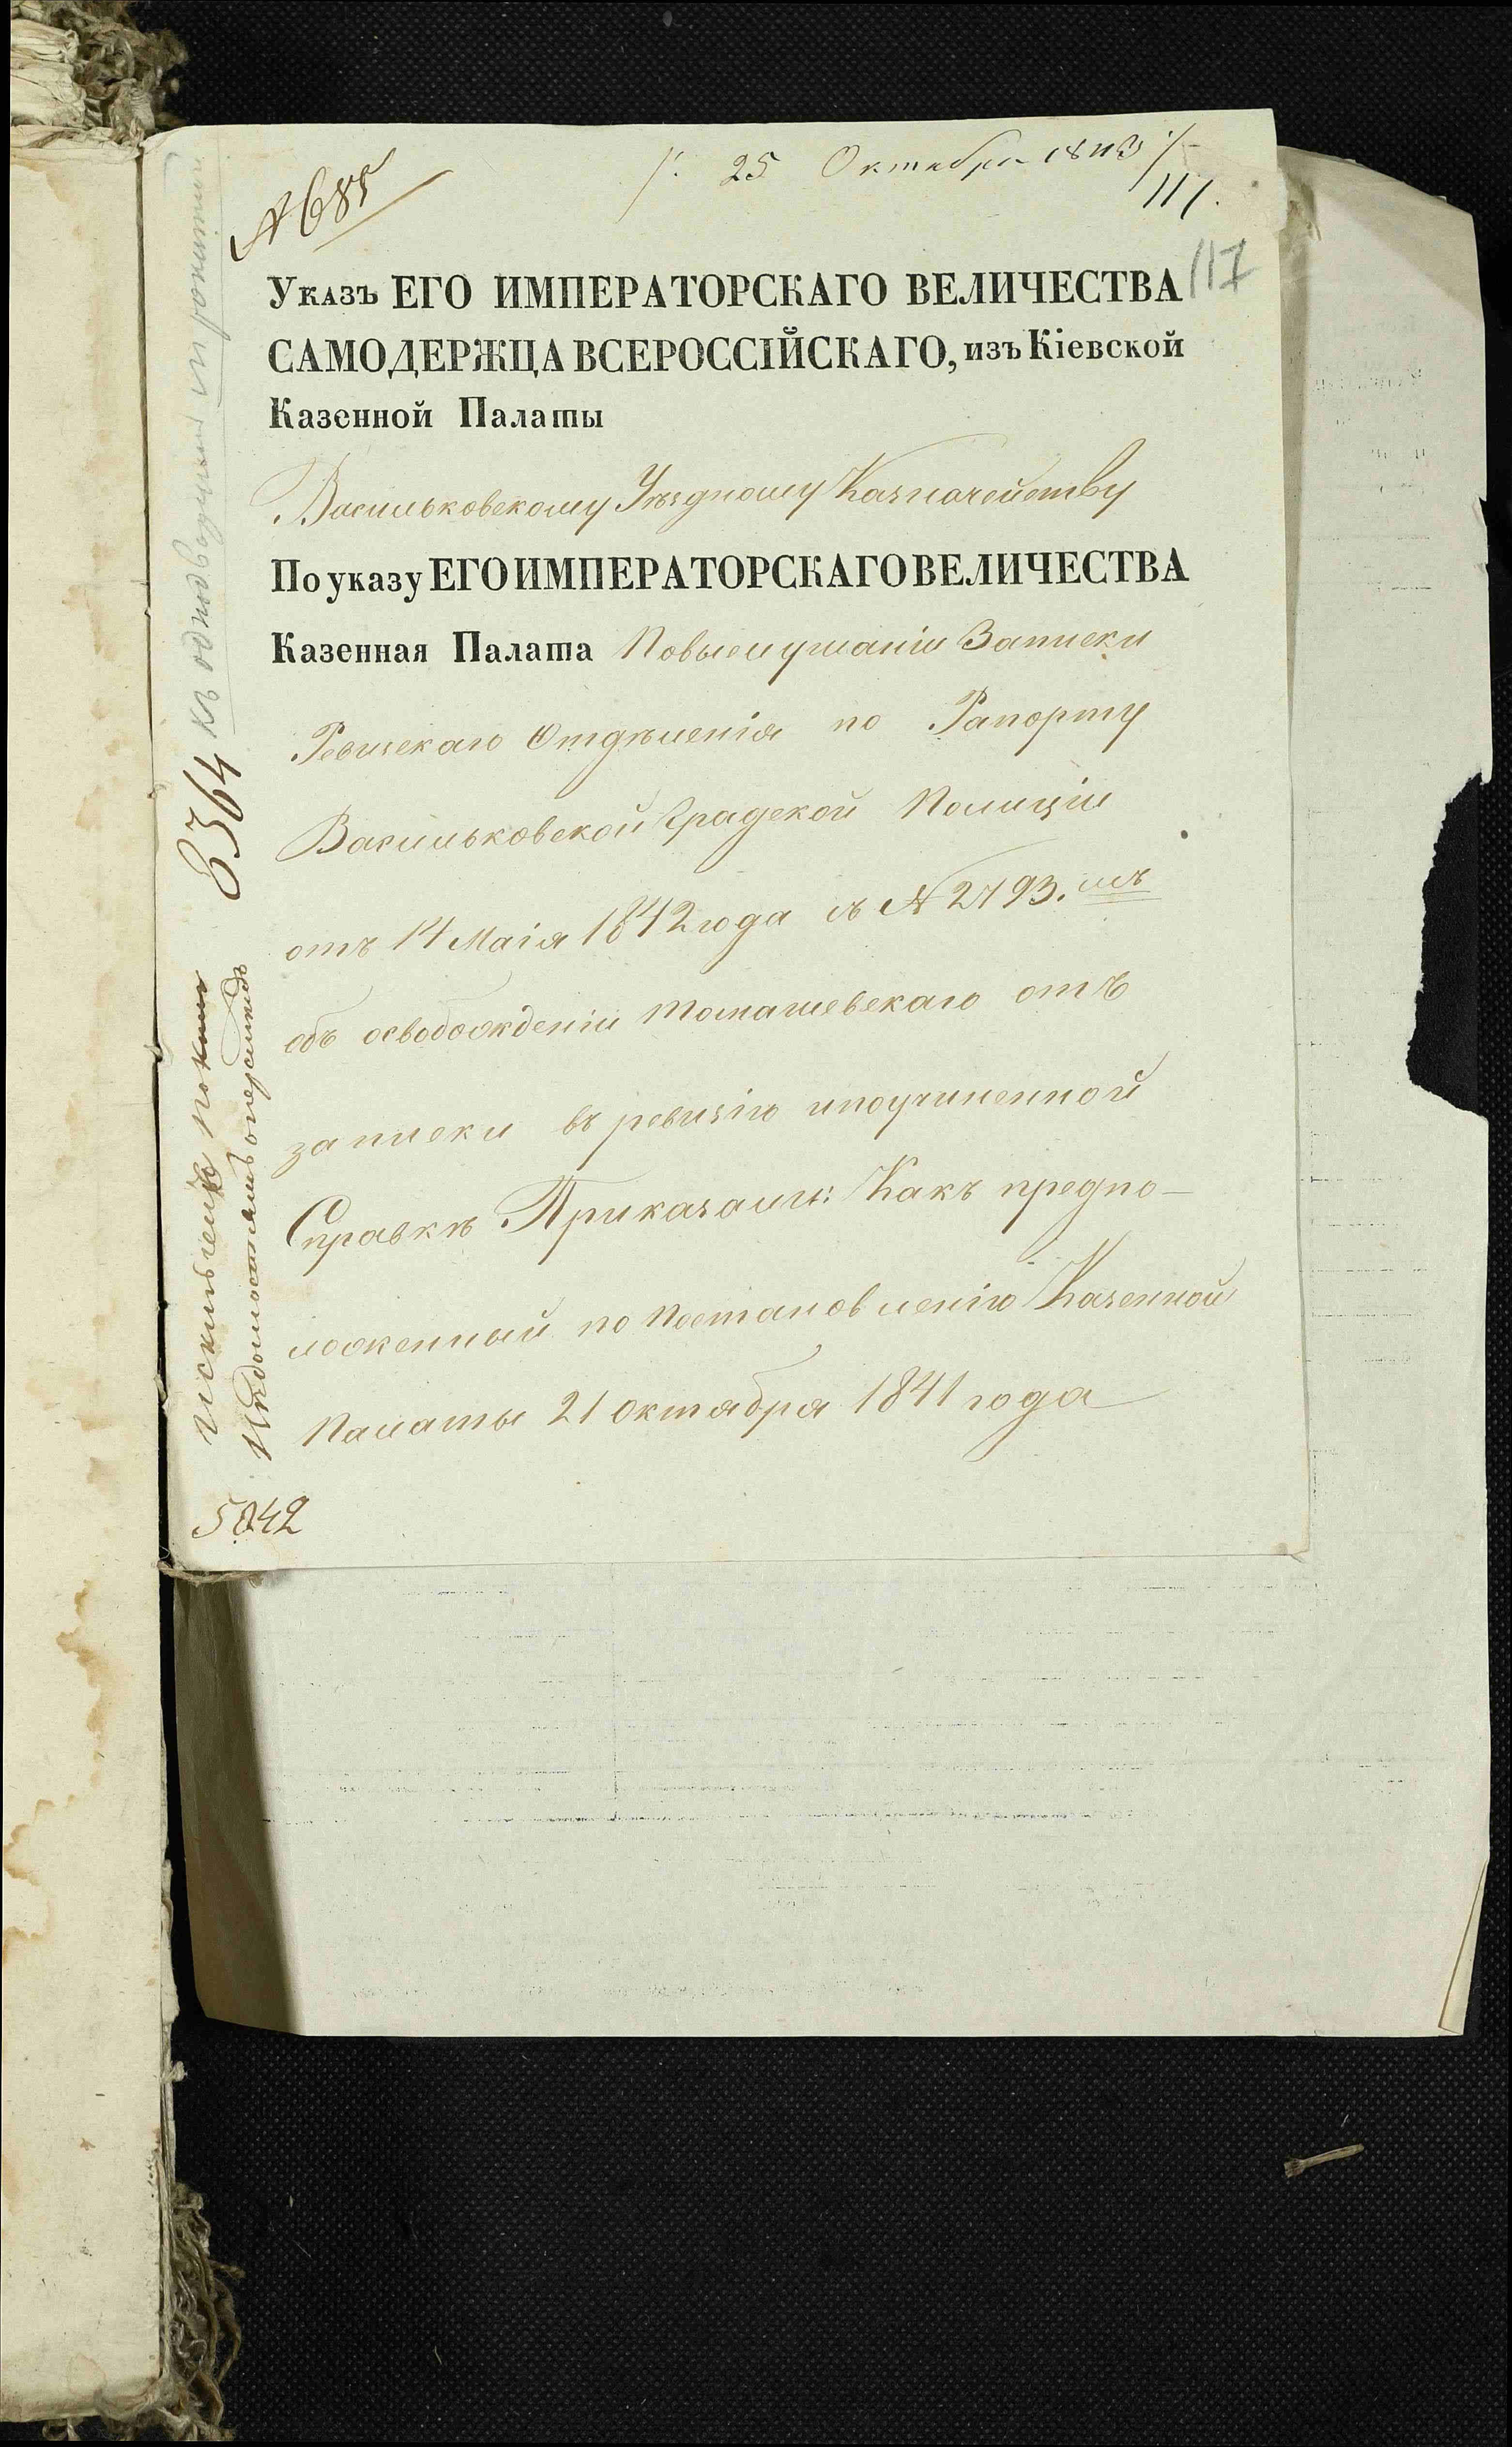 № 685
/: 25 Октября 1843 :/
111.
117
Указъ ЕГО ИМПЕРАТОРСКАГО ВЕЛИЧЕСТВА
САМОДЕРЖЦА ВСЕРОССІЙСКАГО, изъ Кіевской
Казенной Палаты
Васильковскому Уѣздному Казначейству
По указу ЕГО ИМПЕРАТОРСКАГО ВЕЛИЧЕСТВА
Казенная Палата Повыслушаніи Записки
Ревизскаго Отдѣленія по Рапорту
Васильковской Градской Полиціи
отъ 14 Маія 1842 года съ № 2793.
объ освобожденіи Томашевскаго отъ
записки въ ревизію ипоучиненной
Справкѣ Приказали: Какъ предпо-
ложенный по Постановленію Казенной
Палаты 21 Октября 1841 года
5042
8364
къ однодворцам